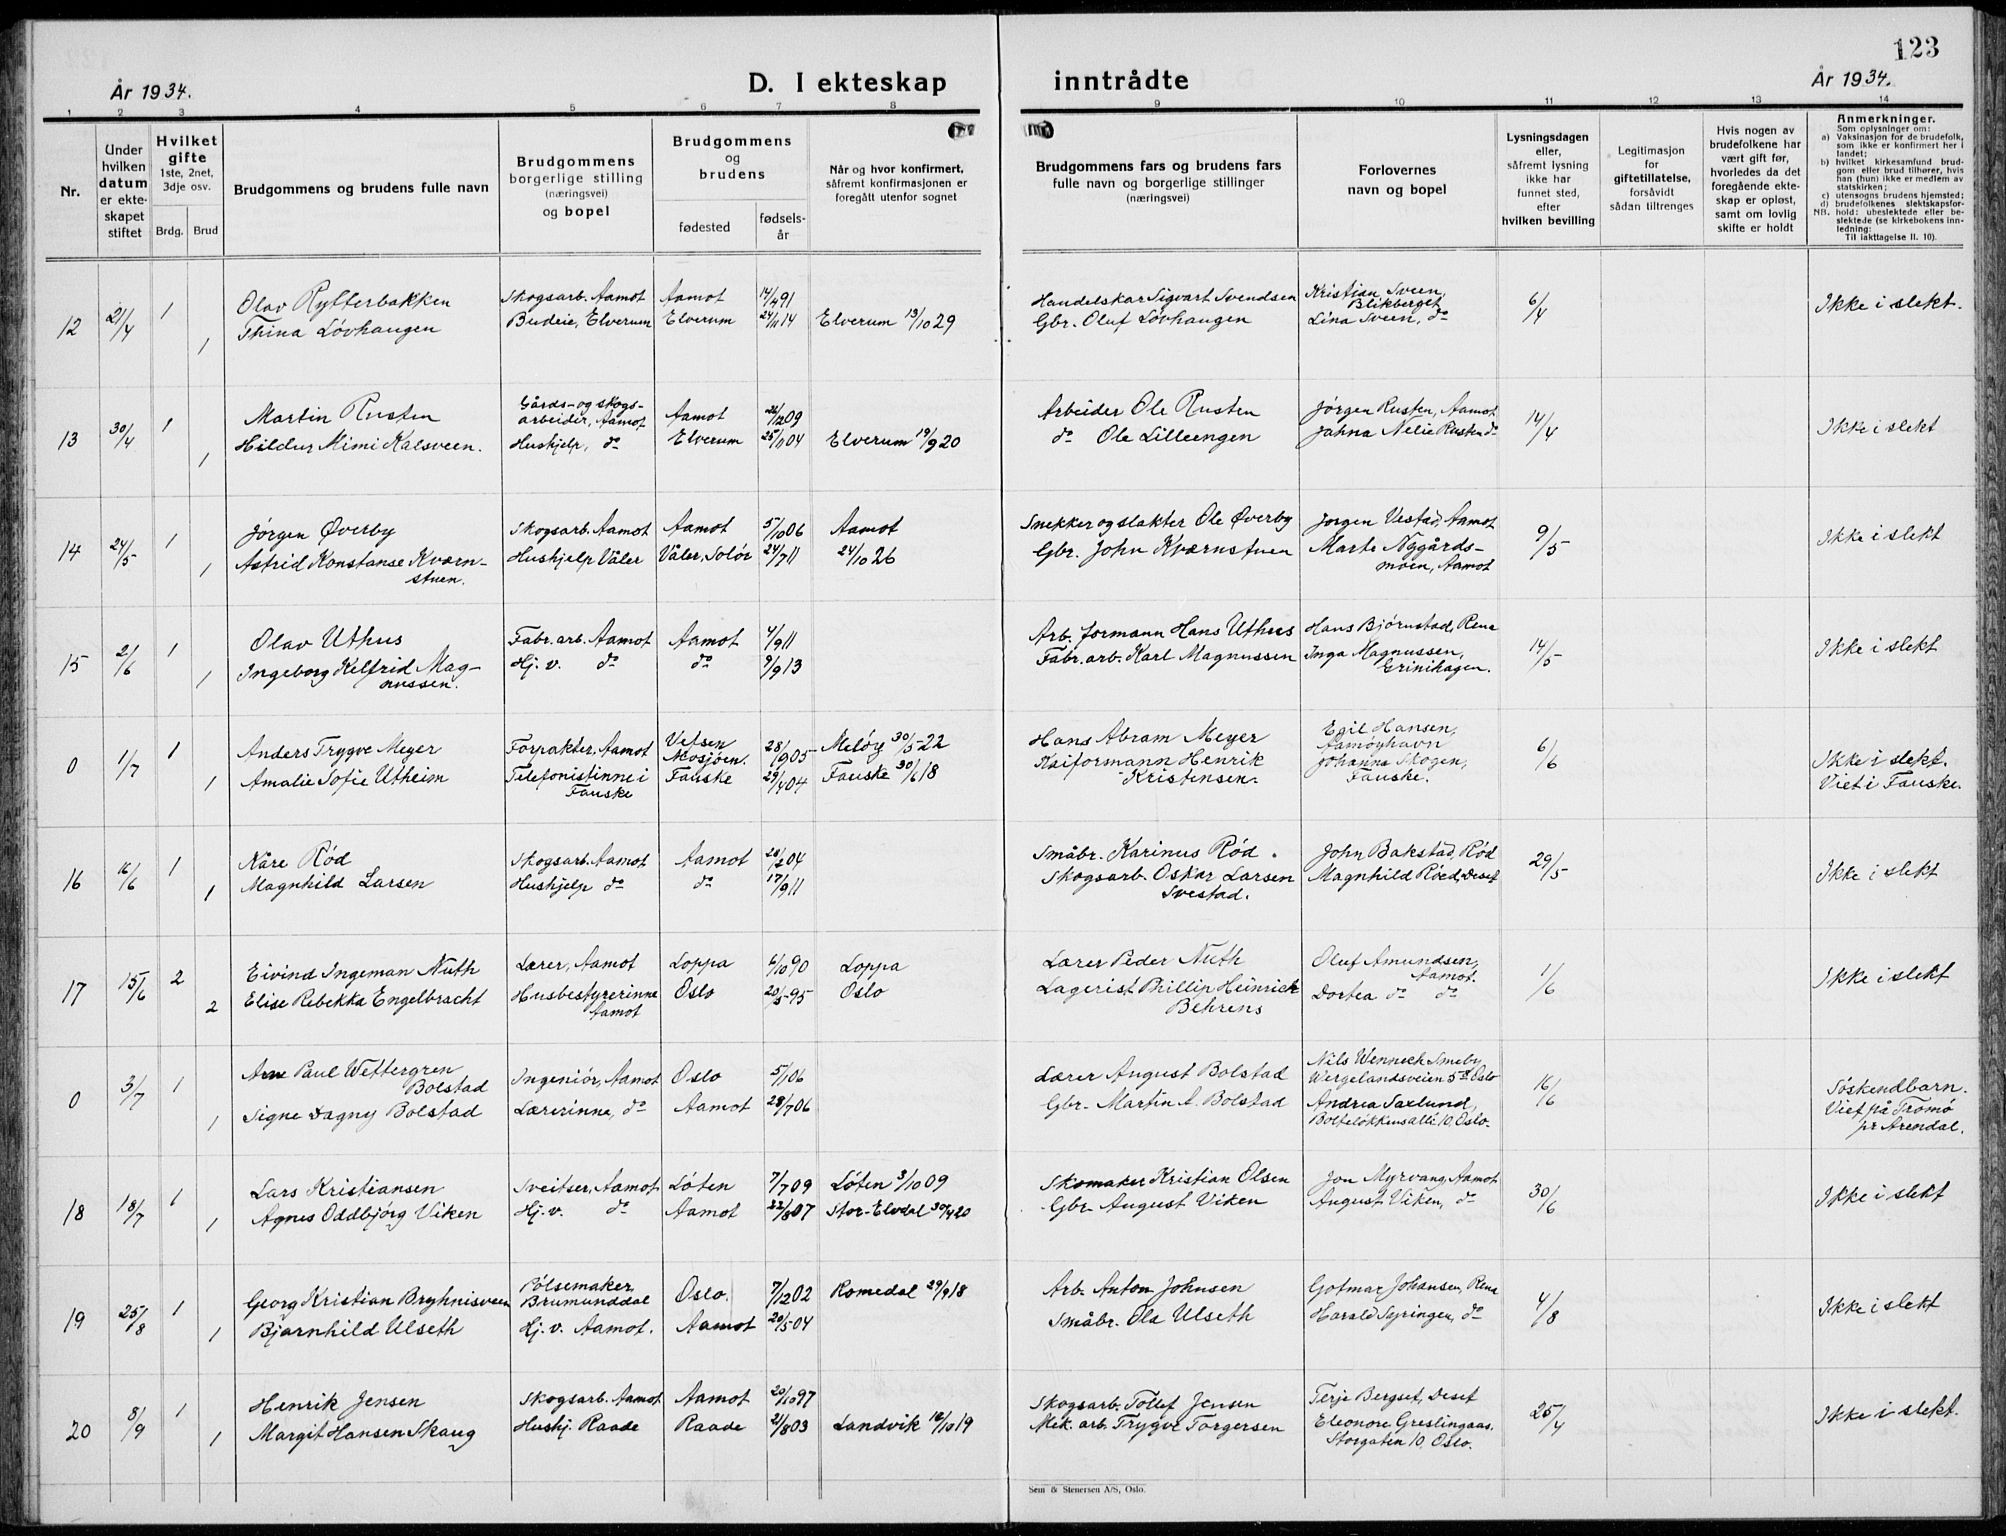 123
År 1934.
D. I ekteskap inntrådte
År 1934.
1 2 3 4 5 6 7 8 9 10 11 12 13 14
Nr.
Under hvilken datum er ekteskapet stiftet
Hvilket gifte 1ste, 2net, 3dje osv.
Brdg. Brud
Brudgommens og brudens fulle navn
Brudgommens borgerlige stilling (næringsvei) og bopel
Brudgommens og brudens
fødested
fødselsår
Når og hvor konfirmert, såfremt konfirmasjonen er foregått utenfor sognet
Brudgommens fars og brudens fars fulle navn og borgerlige stillinger (næringsvei)
Forlovernes navn og bopel
Lysningsdagen eller, såfremt lysning ikke har funnet sted, efter hvilken bevilling
Legitimasjon for giftetillatelse, forsåvidt sådan tiltrenges
Hvis nogen av brudefolkene har vært gift før, hvorledes da det foregående ekteskap er opløst, samt om lovlig skifte er holdt
Anmerkninger.
Som oplysninger om:
a) Vaksinasjon for de brudefolk, som ikke er konfirmert her i landet;
b) hvilket kirkesamfund brudgom eller brud tilhører, hvis han (hun) ikke er medlem av statskirken;
c) utensogns brudens hjemsted;
d) brudefolkenes slektskapsforhold: ubeslektede eller beslektede (se kirkebokens innledning:
NB.
Til iakttagelse II. 10).
12 21/4 1 Olav Rytterbakken Skogsarb. Aamot Aamot 14/4 91 Handelskar Sigvart Svendsen Kristian Sveen, Blikberget 6/4 Ikke i slekt.
1 Thina Lövhaugen Budeie, Elverum Elverum 24/11 14 Elverum 13/10 29 Gbr. Oluf Lövhaugen Lina Sveen, do
13 30/4 1 Martin Rusten Gårds- og skogsarbeider, Aamot Aamot 26/12 09 Arbeider Ole Rusten Jørgen Rusten, Aamot 14/4 Ikke i slekt
1 Hildur Mimi Kalsveen. Hushjelp, do Elverum 25/11 04 Elverum 19/9 20 do Ole Lilleengen Jahna Nelie Rusten do
14 24/5 1 Jørgen Øverby Skogsarb. Aamot Aamot 5/10 06 Aamot Snekker og slakter Ole Øverby Jørgen Vestad, Aamot 9/5 Ikke i slekt
1 Astrid Konstanse Kværnstuen. Hushjelp Våler Våler, Solør 24/7 11 24/10 26 Gbr. John Kværnstuen Marte Nygårdsmoen, Aamot
15 2/6 1 Olav Uthus Fabr. arb. Aamot Aamot 4/9 11 Arb. formann Hans Uthus Hans Björnstad, Rena 14/5 Ikke i slekt
1 Ingeborg Kelfrid Magnussen. Hj. v. do do 9/9 13 Fabr. arb. Karl Magnussen Inga Magnussen, Grinihagen.
0 1/7 1 Anders Trygve Meyer Forpakter, Aamot Vefsen Mosjöen. 28/9 05 Melöy 30/5-22 Hans Abram Meyer Egil Hansen, Aamöyhavn 6/6 Ikke i slekt.
1 Amalie Sofie Utheim Telefonistinne i Fauske Fauske 29/4 04 Fauske 30/6 18 Kaiformann Henrik Kristensen. Johanna Skogen, Fauske. Viet i Fauske.
16 16/6 1 Kåre Röd Skogsarb. Aamot Aamot 28/2 04 Småbr. Karinus Röd. John Bakstad, Röd 29/5 Ikke i slekt
1 Magnhild Larsen Hushjelp do do 17/9 11 Skogsarb. Oskar Larsen Svestad. Magnhild Röed, Deset
17 15/6 2 Eivind Ingeman Nuth Lærer, Aamot Loppa 6/10 90 Loppa Lærer Peder Nuth Oluf Amundsen, Aamot. 1/6 Ikke i slekt
2 Elise Rebekka Engelbracht Husbestyrerinne Aamot Oslo 20/5-95 Oslo Lagerist Phillip Heinrich Behrens Dortea do do
0 3/7 1 Arne Paul Wettergren Bolstad Ingeniör, Aamot Oslo 5/1 06 Lærer August Bolstad Nils Wennech Smeby Wergelandsveien 5 Oslo 16/6 Söskendbarn.
1 Signe Dagny Bolstad Lærerinne, do Aamot 28/7 06 Gbr. Martin A. Bolstad Andrea Saxlund, Bolteløkkens allé 10, Oslo. Viet på Tromö pr Arendal.
18 18/7 1 Lars Kristiansen Sveitser, Aamot Löten 7/7 09 Löten 3/10 09 Skomaker Kristian Olsen Jon Myrvang, Aamot 30/6 Ikke i slekt
1 Agnes Oddbjörg Viken Hj. v. do Aamot 22/8 07 Stor-Elvdal 30/4 20 Gbr. August Viken August Viken, do
19 25/8 1 Georg Kristian Bryhnisveen Pölsemaker, Brumunddal Oslo. 7/2 02 Romedal 29/9 18 Arb. Anton Johnsen Gotmar Johansen, Rena 4/8 Ikke i slekt
1 Bjarnhild Ulseth Hj. v. Aamot. Aamot 20/5 04 Småbr. Ola Ulseth Harald Syringen, do
20 8/9 1 Henrik Jensen Skogsarb. Aamot Aamot 20/10 97 Skogsarb. Tollef Jensen Terje Bergset, Deset 25/4 Ikke i slekt.
1 Margit Hansen Skaug Hushj. Raade Raade 21/8 03 Landvik 12/10 19 Mek. arb. Trygve Torgersen Eleonore Greslingaas. Storgaten 10, Oslo.
Sem & Stenersen A/S, Oslo.